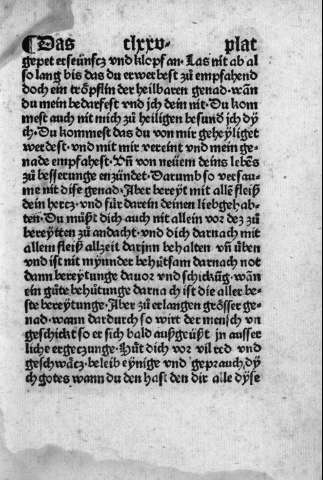 ¶Das clxxv. plat
gepet erseünfcz vnd klopf an. Las nit ab al
so lang bis das du erwerbest zů empfahend
doch ein tröpflin der heilbaren genad. wañ
du mein bedarfest vnd jch dein nit. Du kom
mest auch nit mich zů heiligen besund jch dÿ
ch. Du kommest das du von mir geheyliget
werdest. vnd mit mir vereint vnd mein ge-
nade empfahest. Vñ von neüem deins lebẽs
zů besserunge enzündet. Darumb so versau-
me nit dise genad. Aber bereyt mit allẽ fleiß
dein hercz. vnd für darein deinen liebgehab-
ten. Du můßt dich auch nit allein vor dez zů
bereytten zů andacht. vnd dich darnach mit
allem fleiß allzeit darjnn behalten vñ üben
vnd ist nit mynnder behůtsam darnach not
dann bereytunge dauor vnd schickũg. wañ
ein gůte behůtunge darnach ist die aller be-
ste bereytunge. Aber zů erlangen grösser ge-
nad. wann dardurch so wirt der mensch vn
geschickt so er sich bald außgeüßt jn ausser
liche ergeczunge. Hůt dich vor vil red vnd
geschwäcz. beleib eynige vnd geprauch dÿ
ch gotes wann du den hast den dir alle dÿse